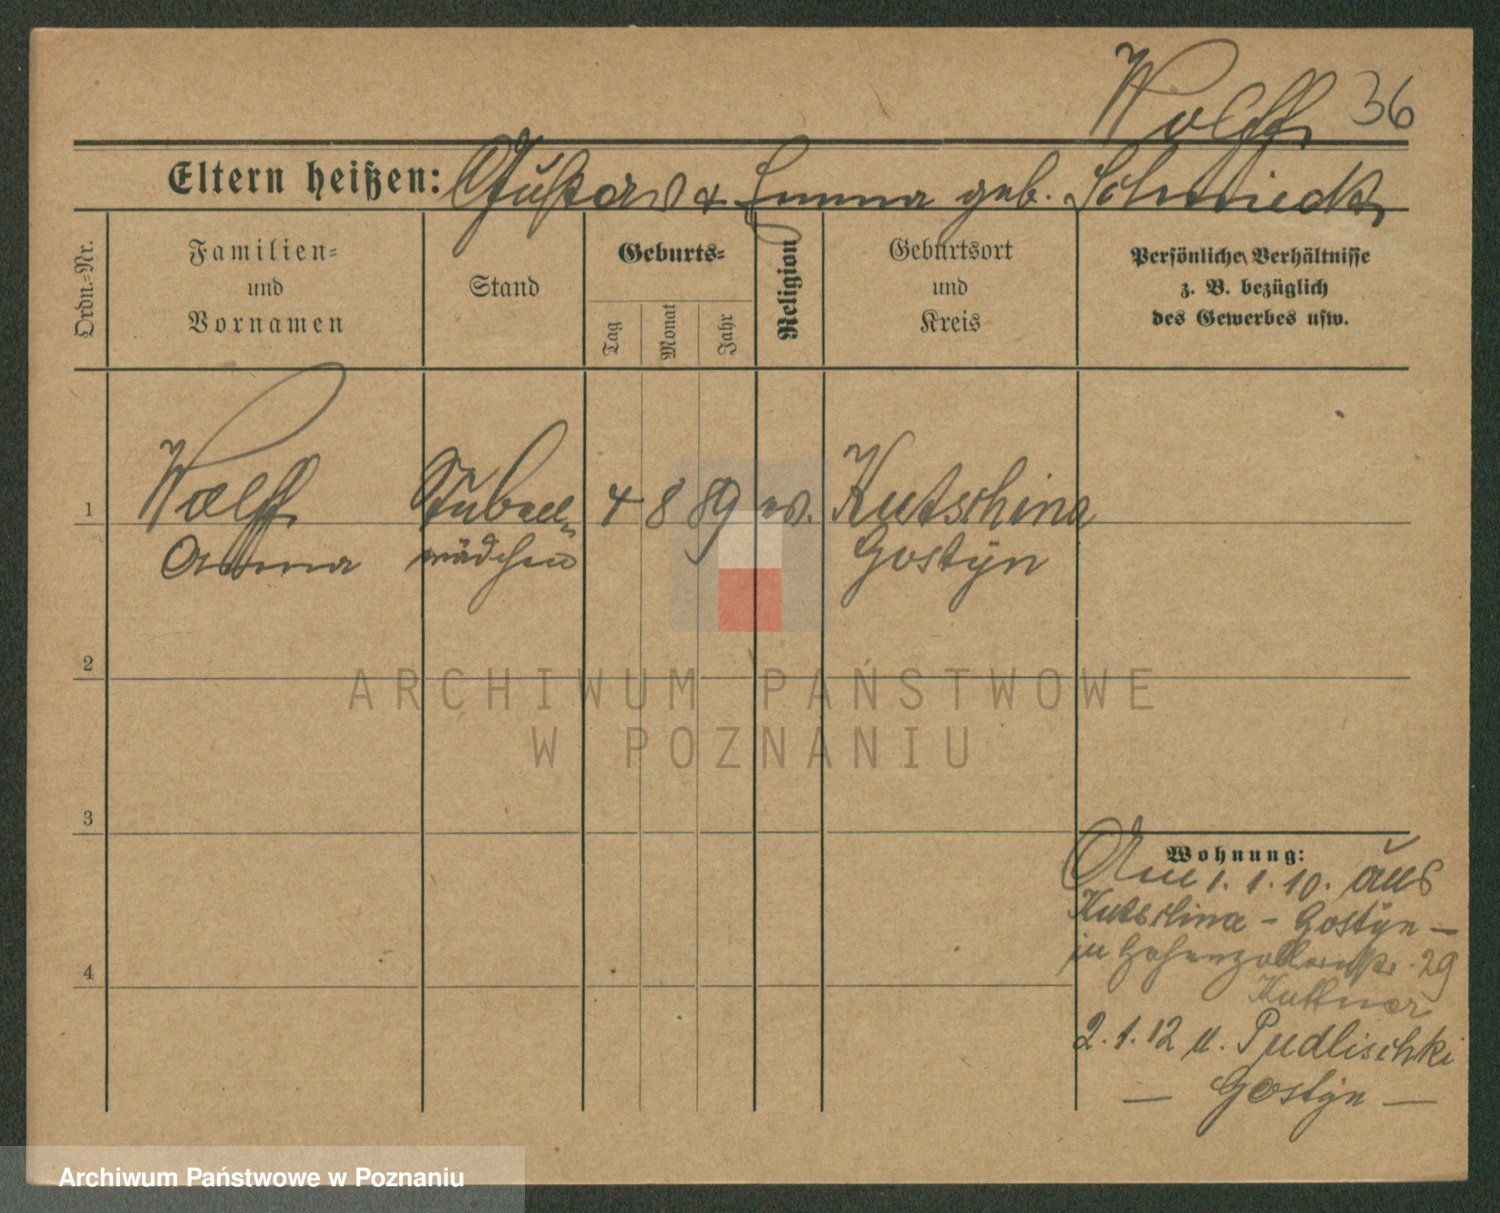 Wolff 36
Eltern heißen: Gustav & Emma geb. Schmiedk
Ordn.-Nr.
Familien-
und
Vornamen
Stand
Geburts-
Tag
Monat
Jahr
Religion
Geburtsort
und
Kreis
Persönliche Verhältnisse
z. B. bezüglich
des Gewerbes usw.
1 Wolff Stuben= 4 8 89 ev. Kutschina
Anna mädchen Gostyn
2
3
4
Wohnung:
1. 1. 10. aus
Kutschina - Gostyn -
in Hohenzollernstr. 29
Kuttner
2. 1. 12 n. Pudlischki
— Gostyn —
ARCHIWUM PAŃSTWOWE
W POZNANIU
Archiwum Państwowe w Poznaniu